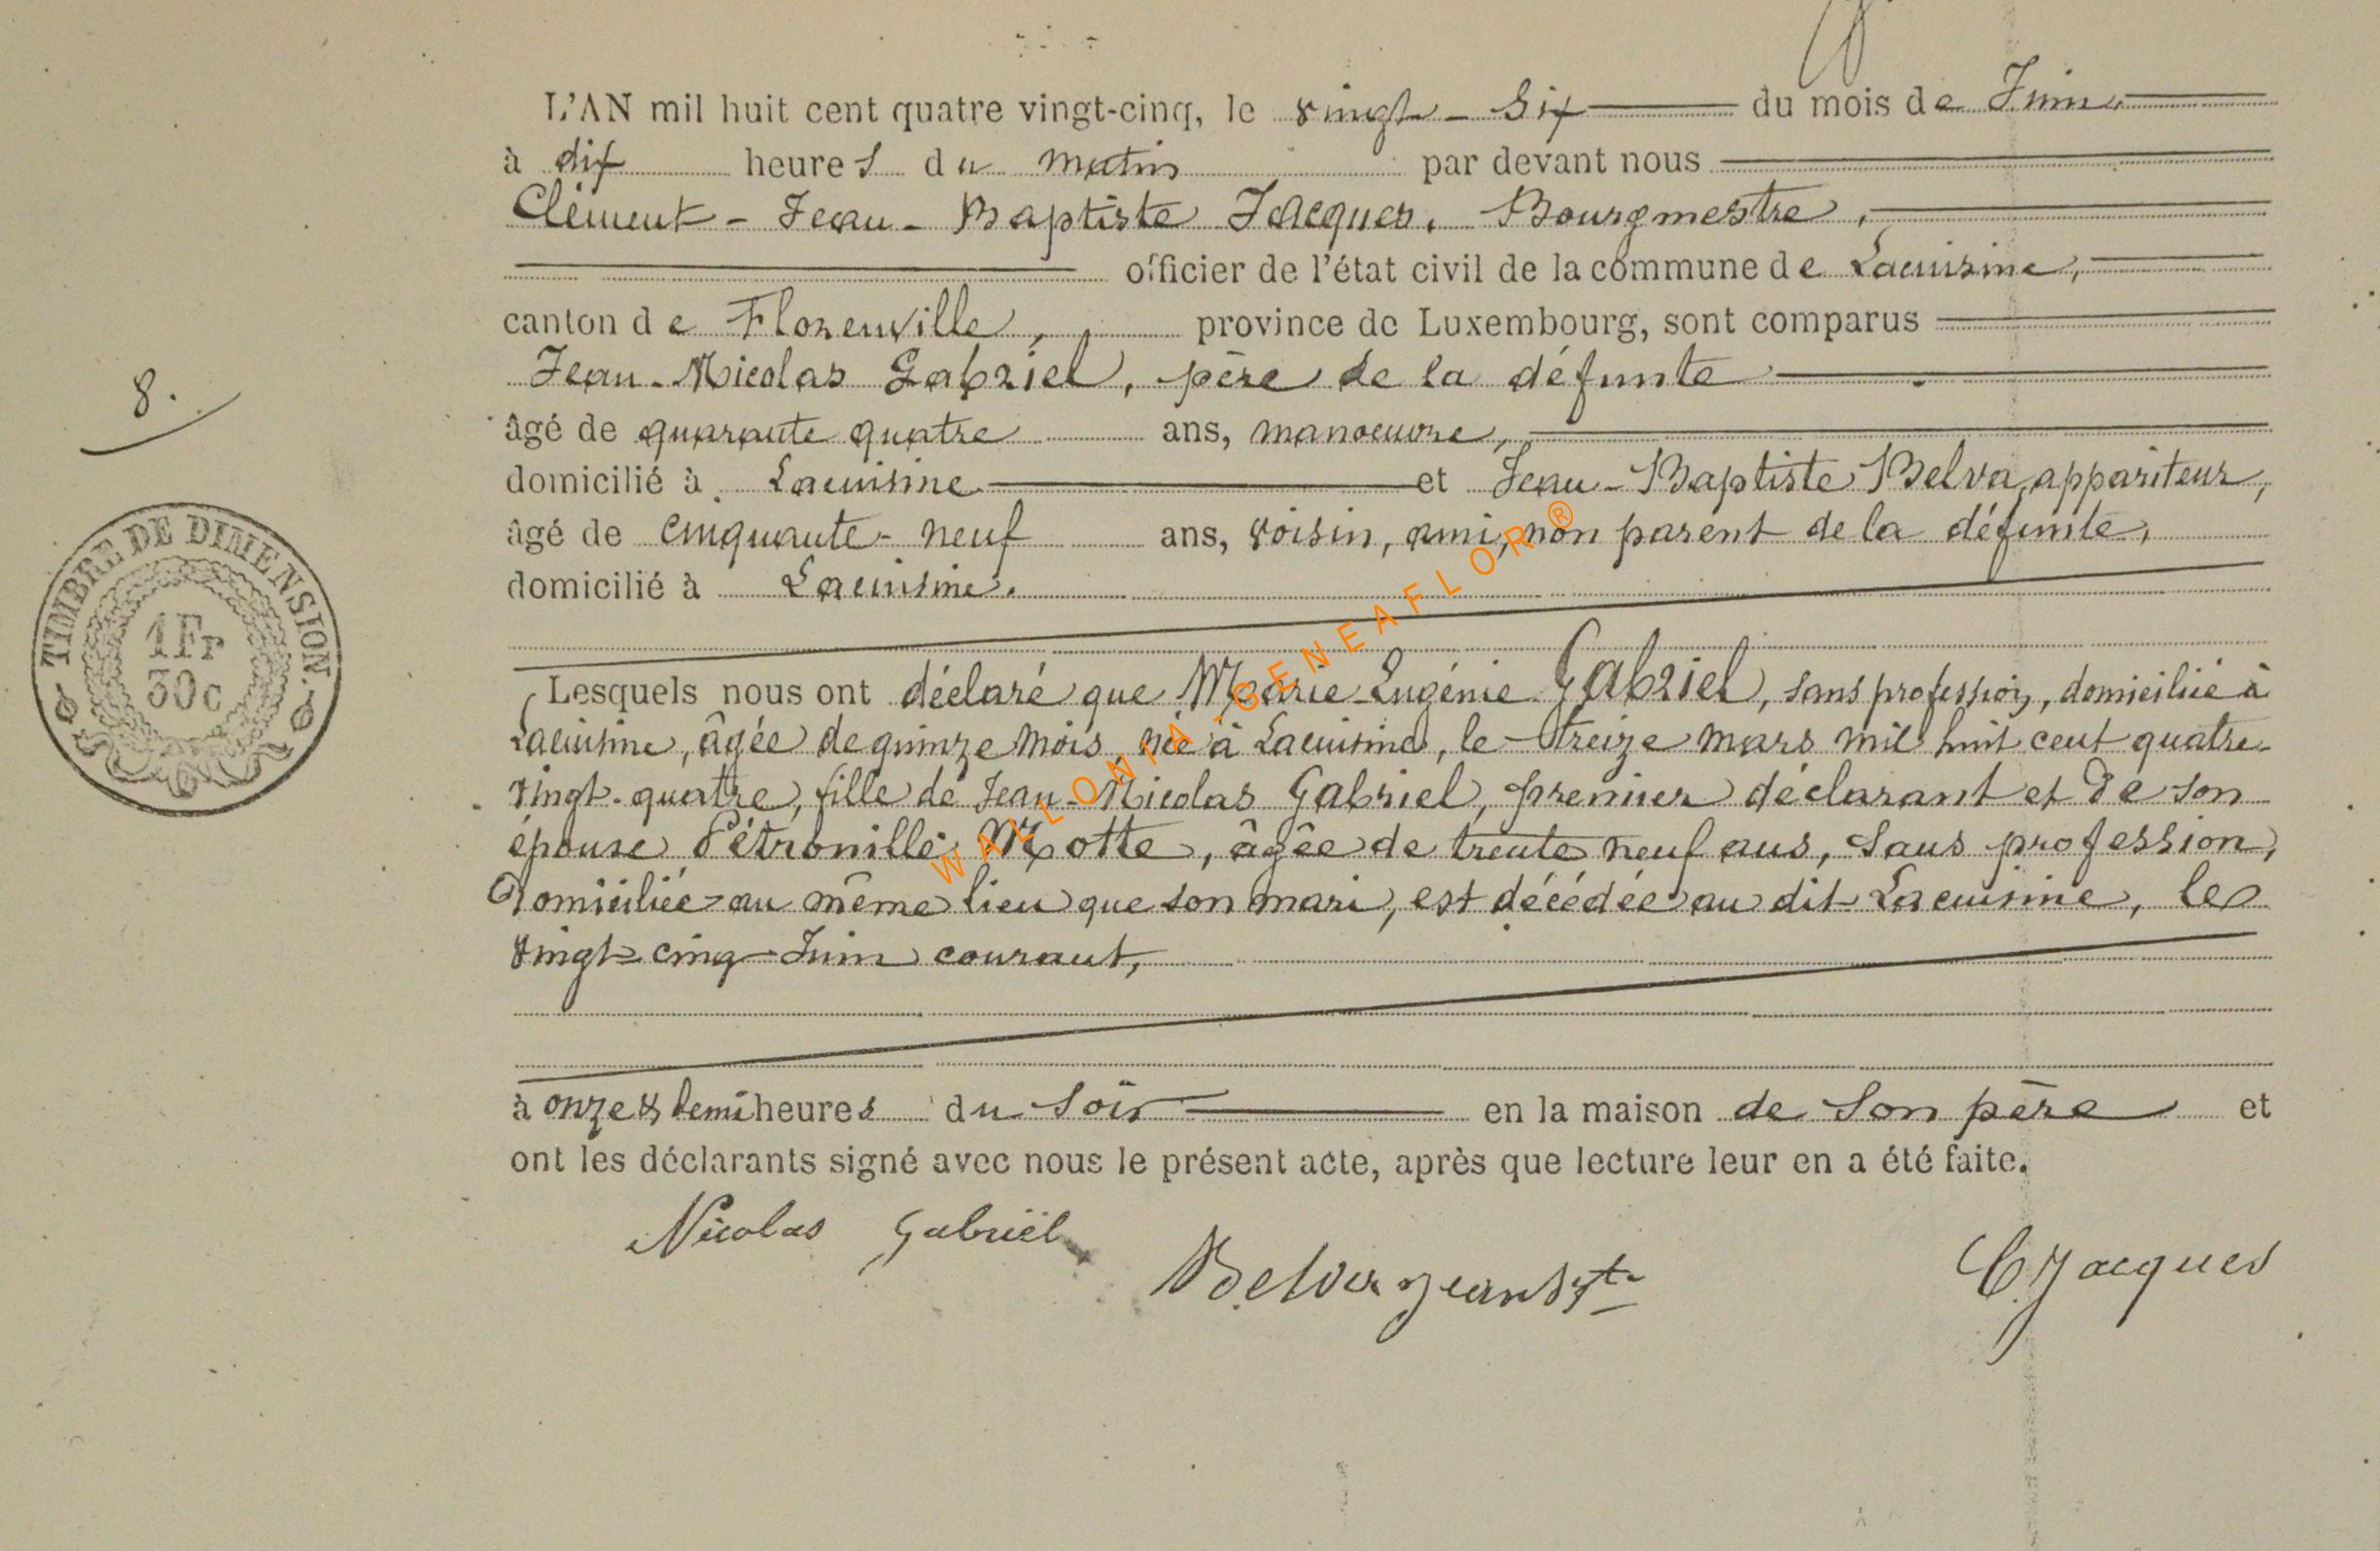 L'AN mil huit cent quatre vingt-cinq, le vingt - six du mois de Juin,
à dix heures du matin par devant nous
Clément - Jean - Baptiste Jacques, Bourgmestre,
officier de l'état civil de la commune de Lacuisine,
canton de Florenville, province de Luxembourg, sont comparus
Jean-Nicolas Gabriel, père de la défunte
âgé de quarante quatre ans, manoeuvre,
domicilié à Lacuisine et Jean-Baptiste Belva, appariteur,
âgé de cinquante-neuf ans, voisin, ami, non parent de la défunte,
domicilié à Lacuisine.
8.
TIMBRE DE DIMENSION.
1Fr
30c
Lesquels nous ont déclaré que Marie-Eugénie Gabriel, sans profession, domiciliée à
Lacuisine, âgée de quinze mois, née à Lacuisine, le treize mars mil huit cent quatre-
vingt-quatre, fille de Jean-Nicolas Gabriel, premier déclarant et de son
épouse Pétronille Motte, âgée de trente neuf ans, sans profession,
domiciliée au même lieu que son mari, est décédée au dit Lacuisine, le
vingt-cinq Juin courant,
à onze & demi heures du soir en la maison de son père et
ont les déclarants signé avec nous le présent acte, après que lecture leur en a été faite.
Nicolas Gabriël
Belva jean Bte
C. Jacques
WALLONIA-GENEAFLOR®